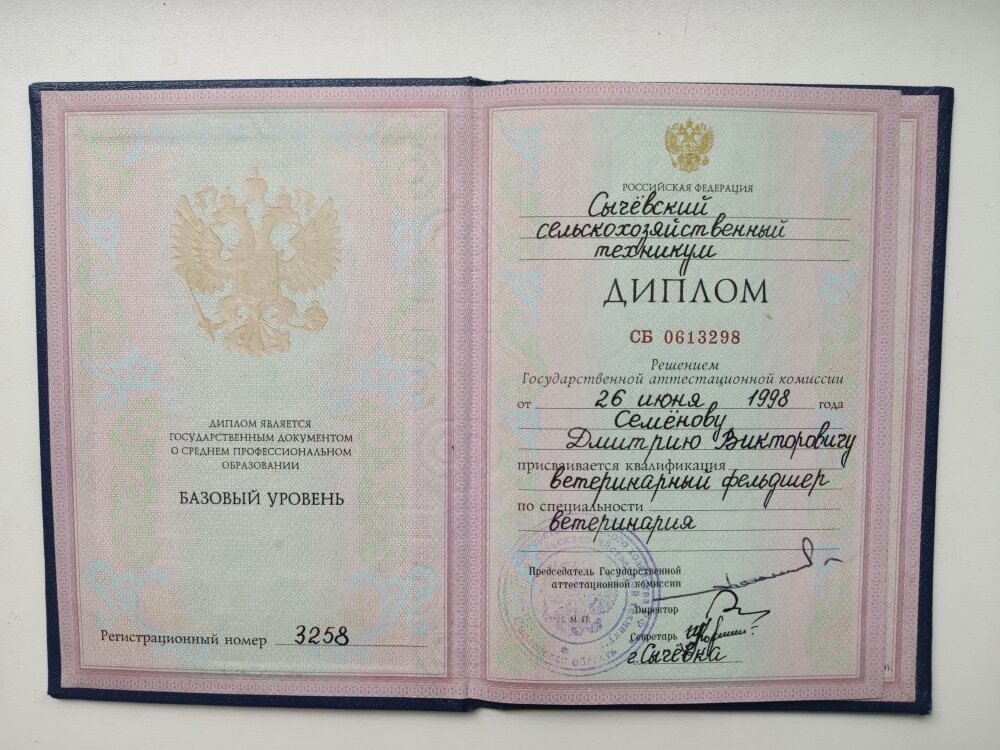 ДИПЛОМ ЯВЛЯЕТСЯ
ГОСУДАРСТВЕННЫМ ДОКУМЕНТОМ
О СРЕДНЕМ ПРОФЕССИОНАЛЬНОМ
ОБРАЗОВАНИИ
БАЗОВЫЙ УРОВЕНЬ
Регистрационный номер 3258
РОССИЙСКАЯ ФЕДЕРАЦИЯ
Сычёвский
сельскохозяйственный
техникум
ДИПЛОМ
СБ 0613298
Решением
Государственной аттестационной комиссии
от 26 июня 1998 года
Семёнову
Дмитрию Викторовичу
присваивается квалификация
ветеринарный фельдшер
по специальности
ветеринария
Председатель Государственной
аттестационной комиссии
М.П.
Директор
Секретарь
г. Сычёвка